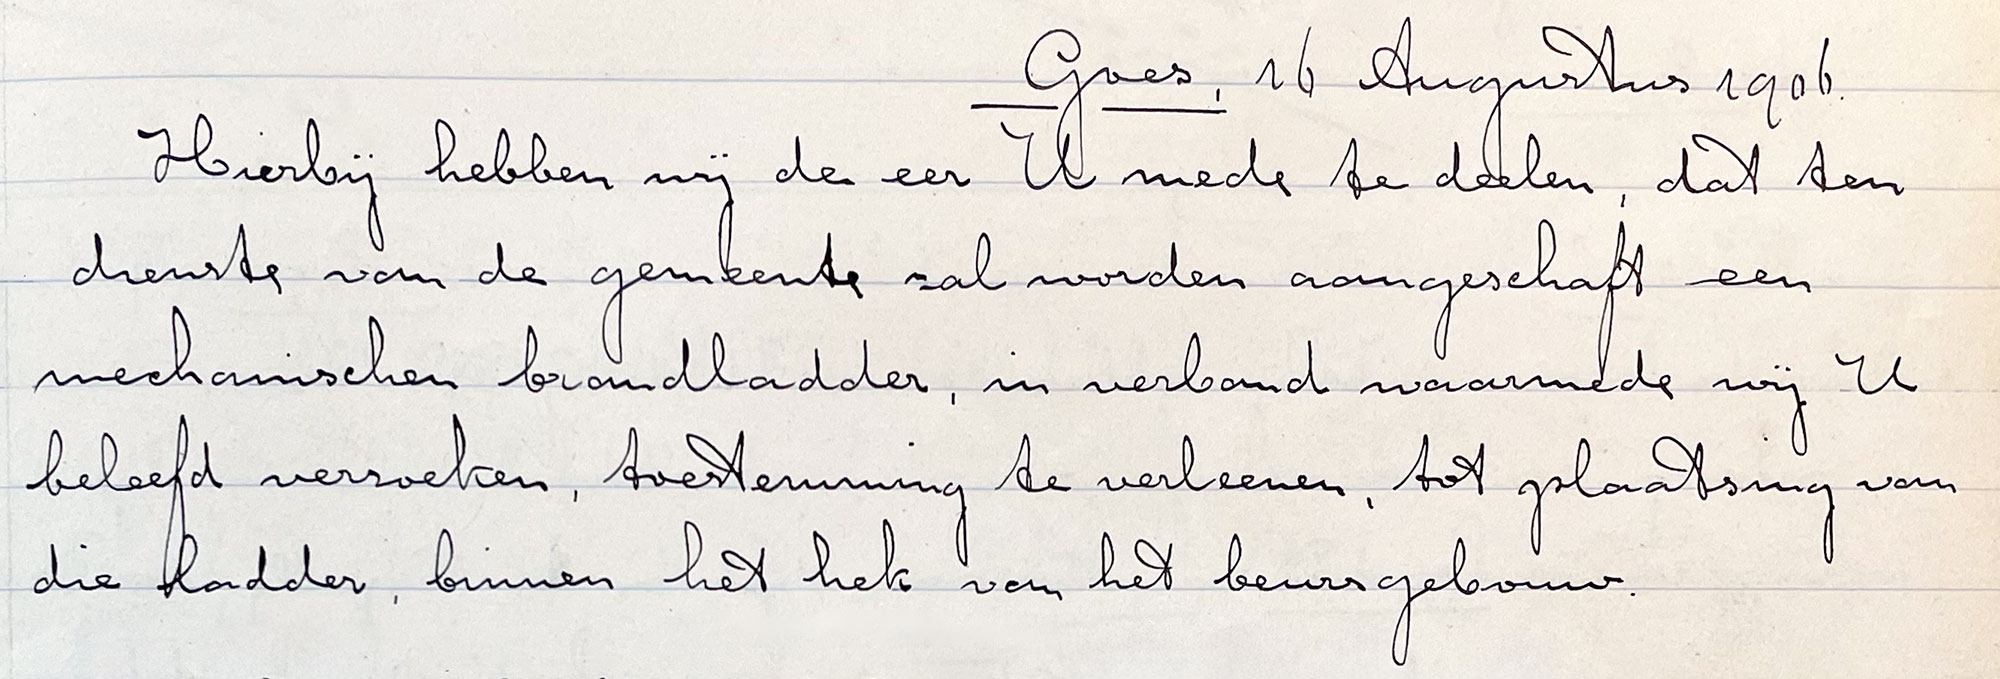 Goes, 16 Augustus 1906.
Hierbij hebben wij de eer U mede te deelen, dat ten
dienste van de gemeente zal worden aangeschaft een
mechanischen brandladder, in verband waarmede wij U
beleefd verzoeken, toestemming te verleenen, tot plaatsing van
die ladder, binnen het hek van het beursgebouw.